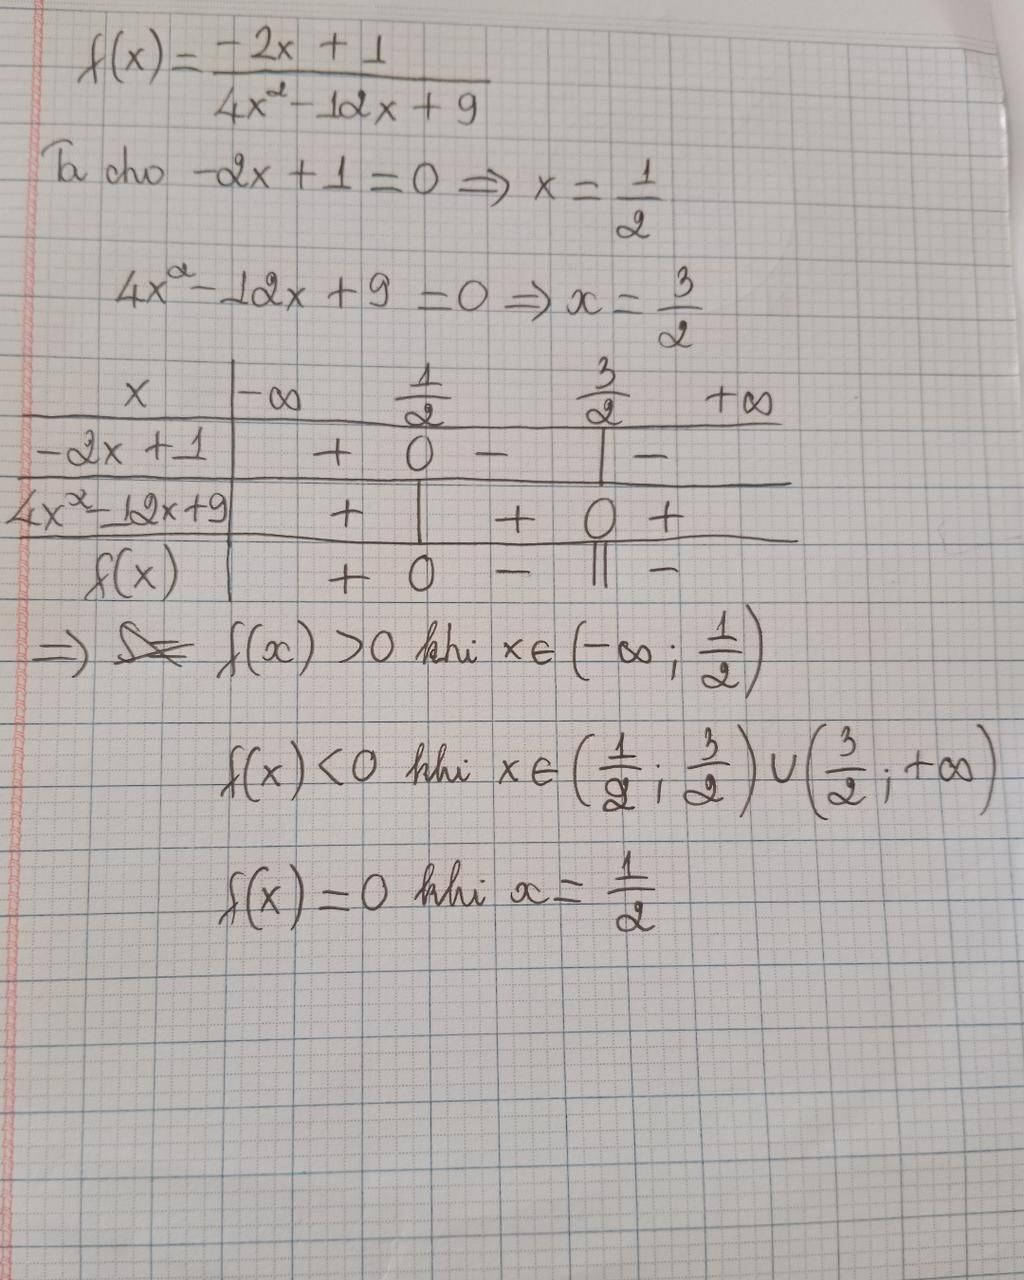 f(x) = (-2x + 1)/(4x² - 12x + 9)
Ta cho -2x + 1 = 0 ⇒ x = 1/2
4x² - 12x + 9 = 0 ⇒ x = 3/2
x | -∞ 1/2 3/2 +∞
-2x + 1 | + 0 - | -
4x² - 12x + 9 | + | + 0 +
f(x) | + 0 - || -
⇒ f(x) > 0 khi x ∈ (-∞; 1/2)
f(x) < 0 khi x ∈ (1/2; 3/2) ∪ (3/2; +∞)
f(x) = 0 khi x = 1/2